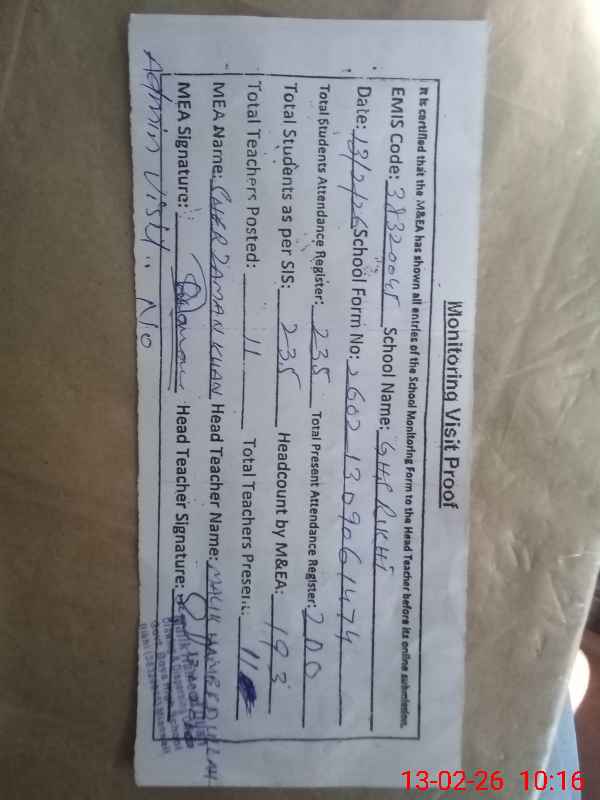 Monitoring Visit Proof
It is certified that the M&EA has shown all entries of the School Monitoring Form to the Head Teacher before its online submission.
EMIS Code: 38320045 School Name: GHS RIKHI
Date: 13/2/26 School Form No: 2602130906 1474
Total Students Attendance Register: 235 Total Present Attendance Register: 200
Total Students as per SIS: 235 Headcount by M&EA: 193
Total Teachers Posted: 11 Total Teachers Present: 11
MEA Name: ZAMAN KHAN Head Teacher Name: MALIK
MEA Signature: Head Teacher Signature:
Admin Visit: No
13-02-26 10:16